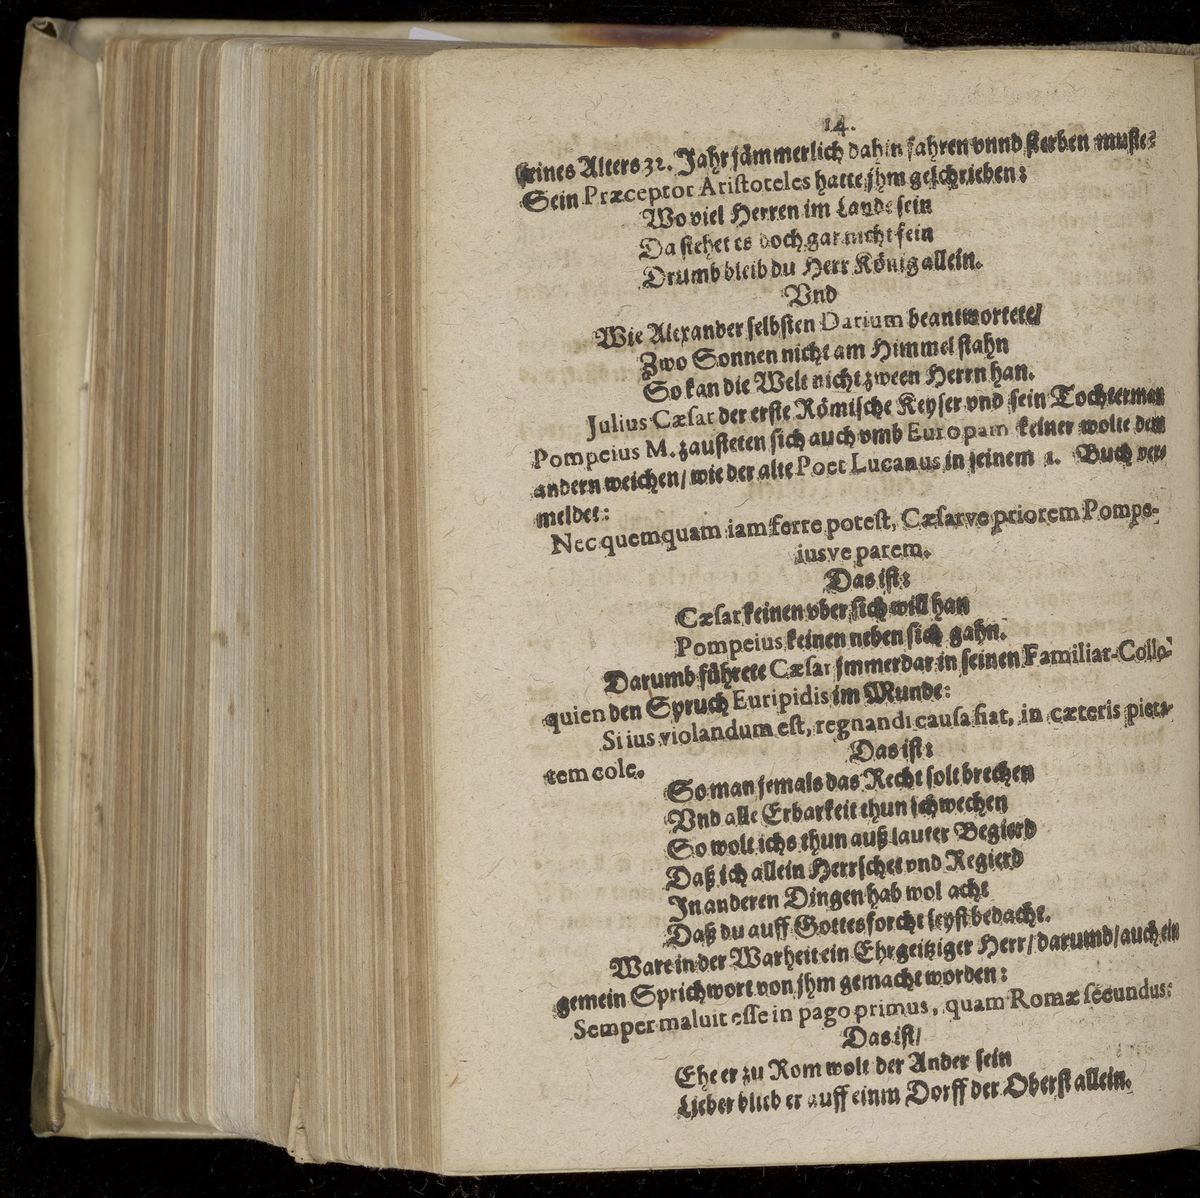 14.
seines Alters 32. Jahr jämmerlich dahin fahren vnnd sterben muste:
Sein Præceptor Aristoteles hatte jhm geschrieben:
Wo viel Herren im Lande sein
Da stehet es doch gar nicht fein
Drumb bleib du Herr König allein.
Vnd
Wie Alexander selbsten Darium beantwortete/
Zwo Sonnen nicht am Himmel stahn
So kan die Welt nicht zween Herrn han.
Julius Cæsar der erste Römische Keyser vnd sein Tochterman
Pompeius M. zausteten sich auch vmb Europam keiner wolte dem
andern weichen/ wie der alte Poet Lucanus in seinem 1. Buch ver-
meldet:
Nec quemquam iam ferre potest, Cæsarve priorem Pompe-
iusve parem.
Das ist:
Cæsar keinen vber sich will han
Pompeius keinen neben sich gahn.
Darumb führete Cæsar jmmerdar in seinen Familiar-Collo-
quien den Spruch Euripidis im Munde:
Si ius violandum est, regnandi causa fiat, in cæteris pieta-
tem cole.
Das ist:
So man jemals das Recht solt brechen
Vnd alle Erbarkeit thun schwechen
So wolt ichs thun auß lauter Begierd
Daß ich allein Herrschet vnd Regierd
In anderen Dingen hab wol acht
Daß du auff Gottesforcht seyst bedacht.
Ware in der Warheit ein Ehrgeitziger Herr/ darumb/ auch ein
gemein Sprichwort von jhm gemacht worden:
Semper maluit esse in pago primus, quam Romæ secundus:
Das ist/
Ehe er zu Rom wolt der Ander sein
Lieber blieb er auff einm Dorff der Oberst allein.